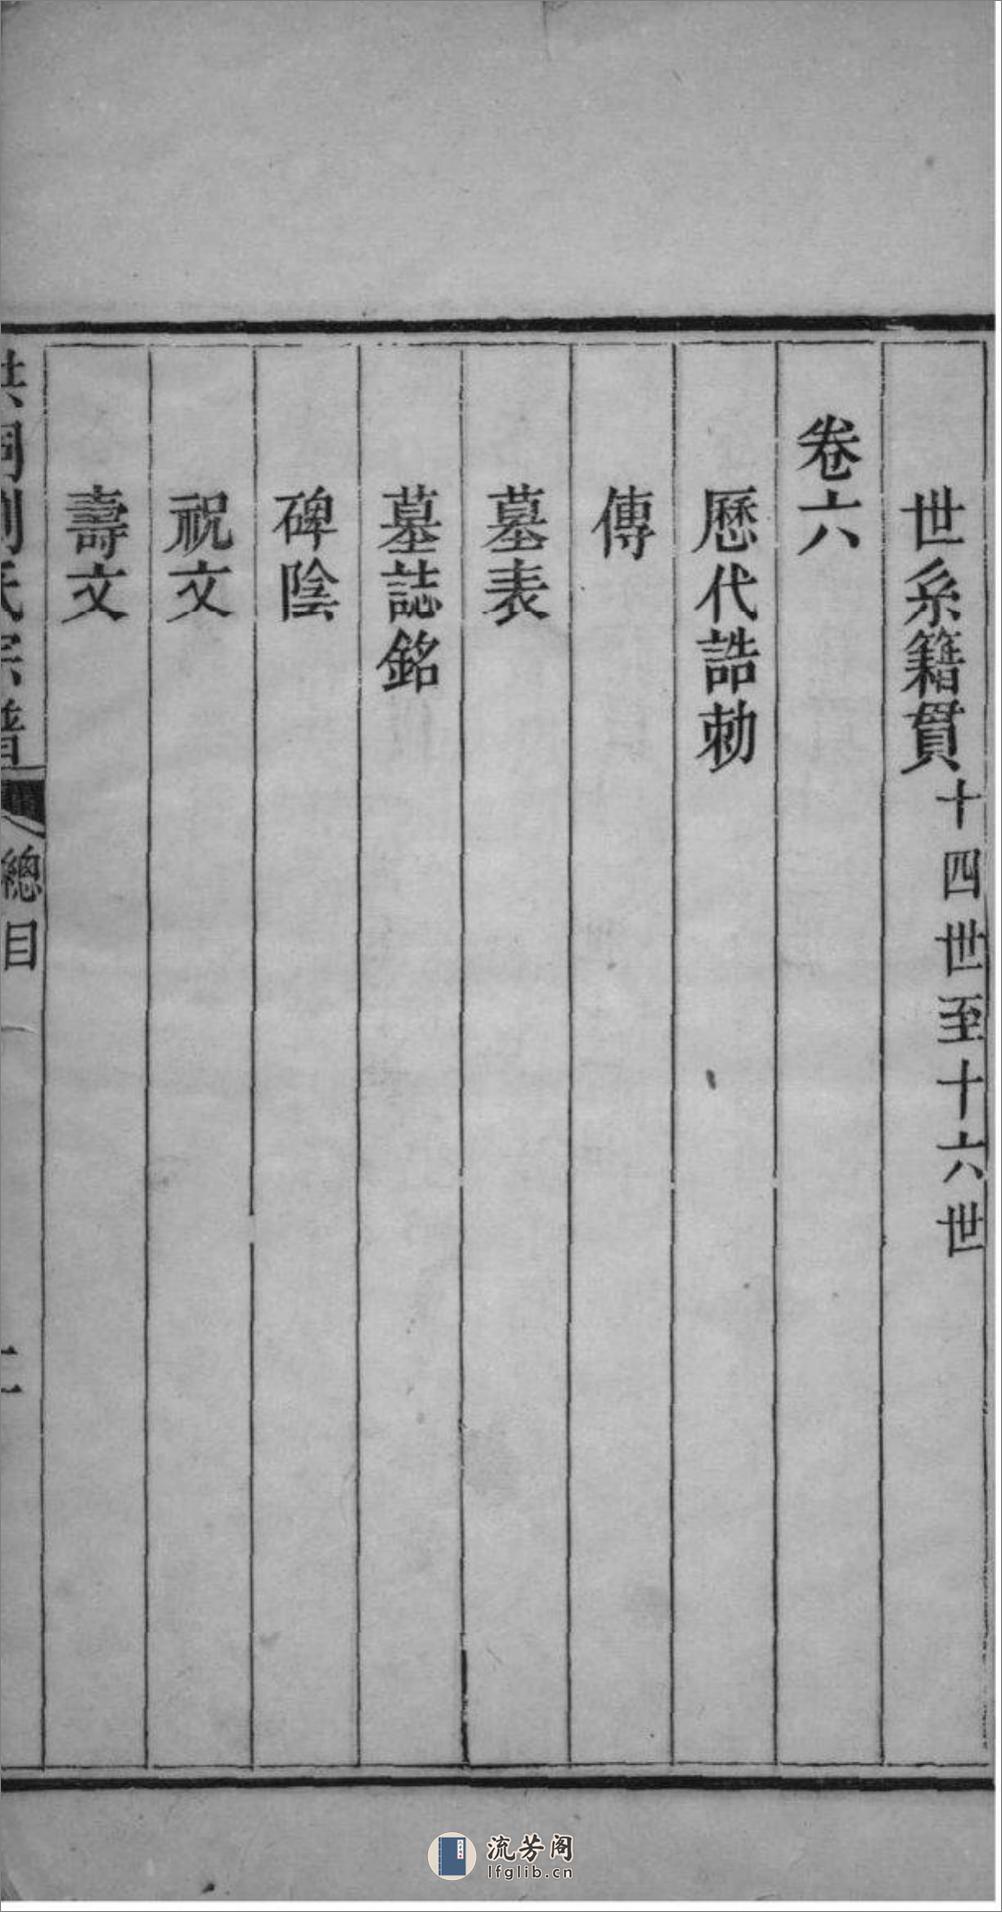 世系籍貫十四世至十六世
卷六
歷代誥勅
傳
墓表
墓誌銘
碑陰
祝文
壽文
洪洞劉氏宗譜
總目
二
流芳阁
lfglib.cn